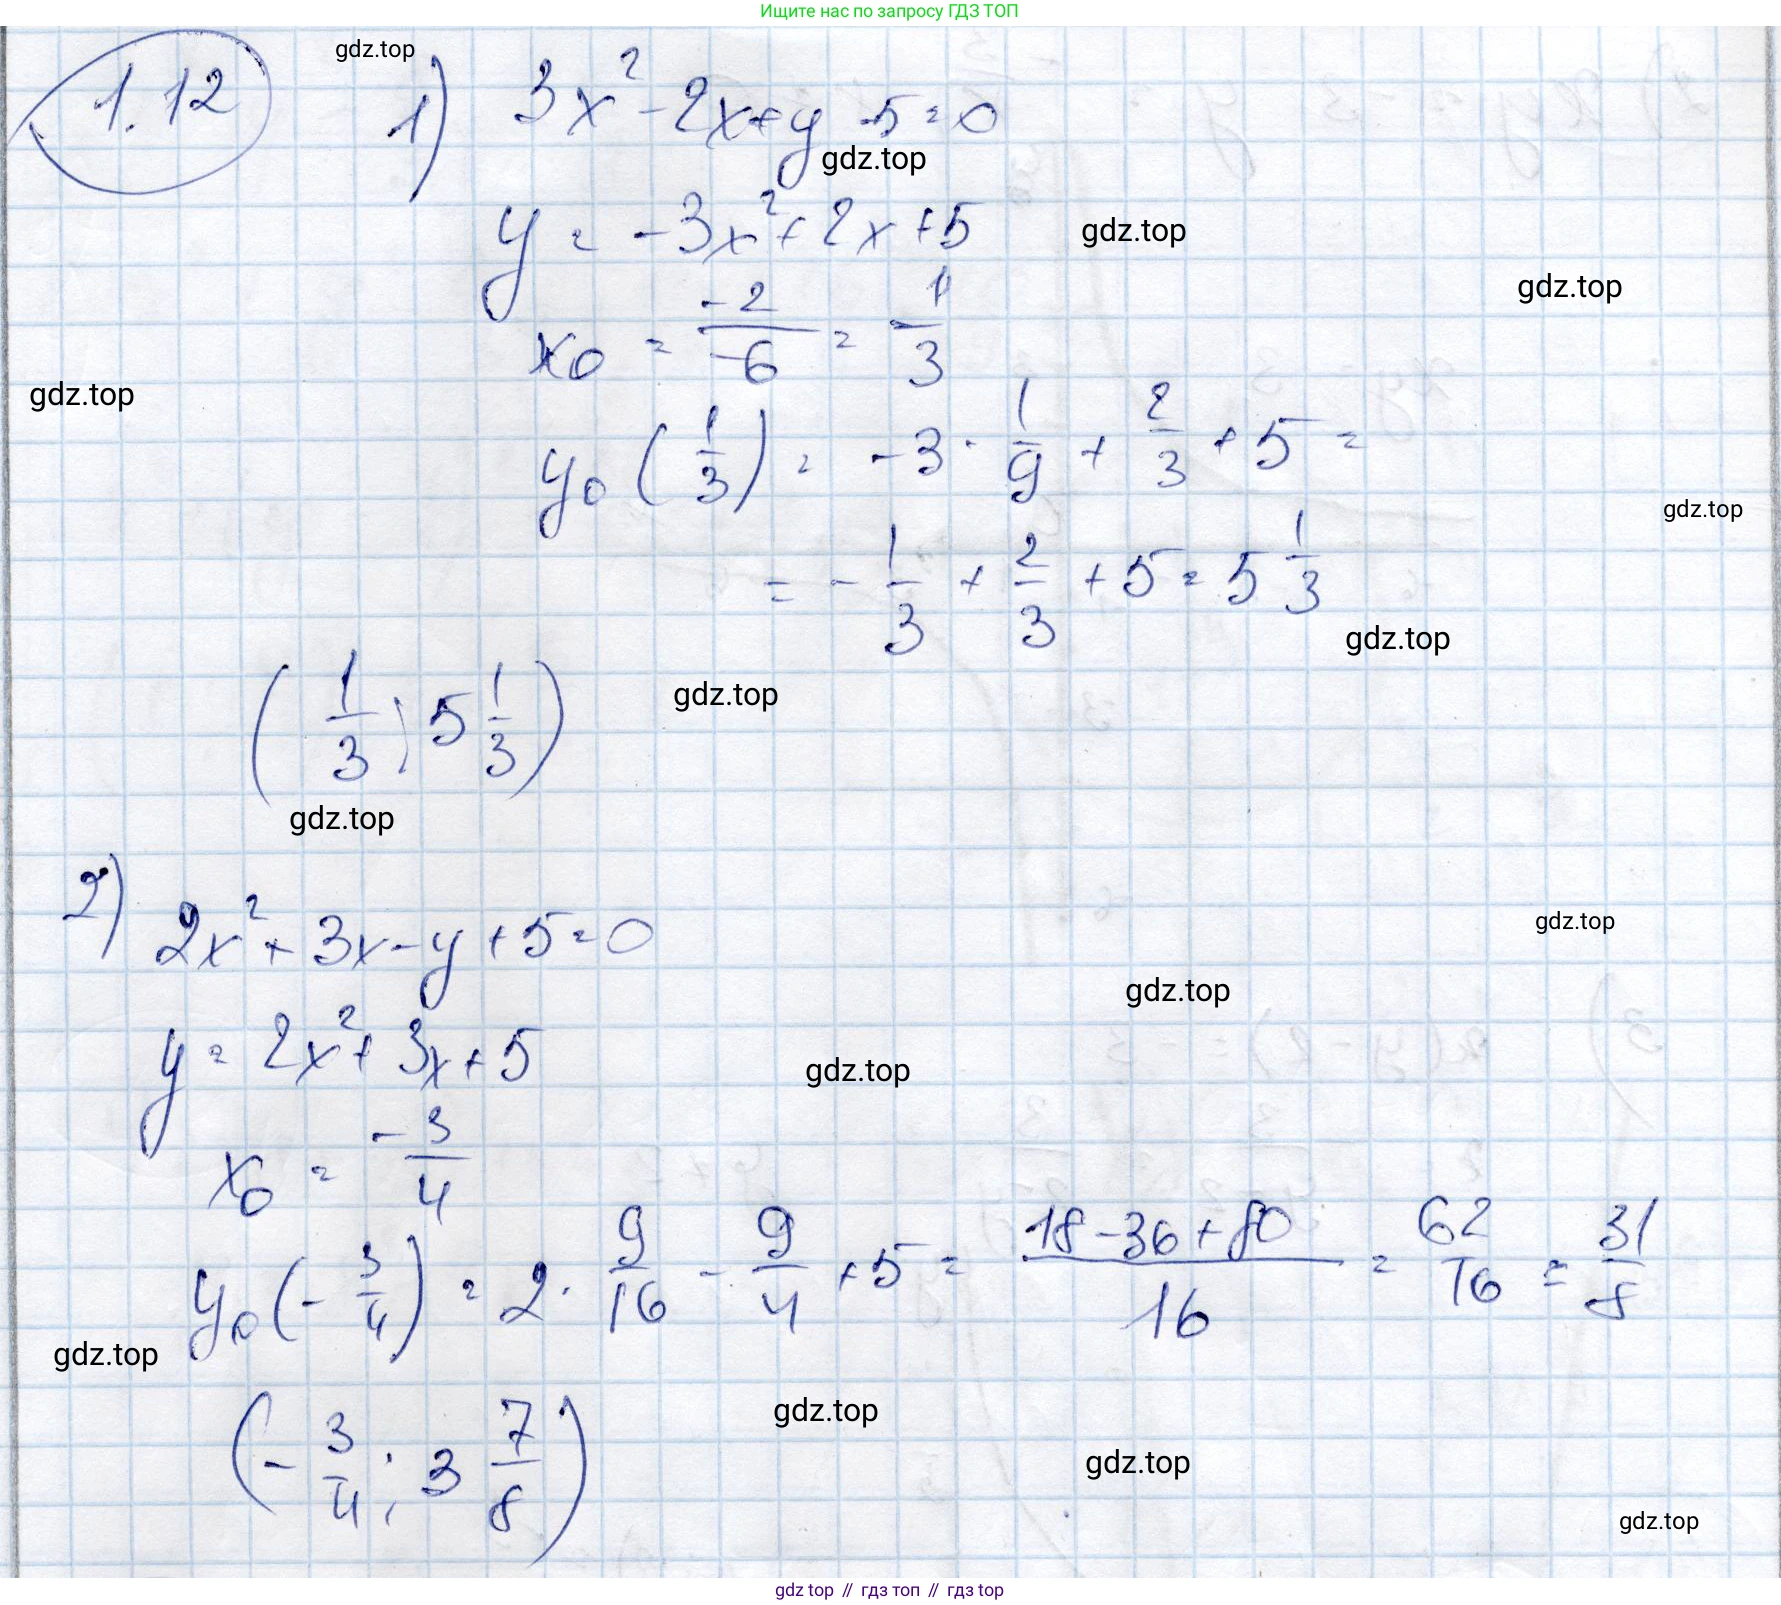 Ищите нас по запросу ГДЗ ТОП
gdz.top
1.12
1) 3x² - 2x + y - 5 = 0
gdz.top
y = -3x² + 2x + 5
gdz.top
gdz.top
x₀ = -2/-6 = 1/3
gdz.top
y₀(1/3) = -3 · 1/9 + 2/3 + 5 =
gdz.top
= -1/3 + 2/3 + 5 = 5 1/3
gdz.top
(1/3; 5 1/3)
gdz.top
gdz.top
2) 2x² + 3x - y + 5 = 0
gdz.top
gdz.top
y = 2x² + 3x + 5
gdz.top
x₀ = -3/4
y₀(-3/4) = 2 · 9/16 - 9/4 + 5 = 18 - 36 + 80/16 = 62/16 = 31/8
gdz.top
gdz.top
(-3/4; 3 7/8)
gdz.top
gdz.top
gdz top // гдз топ // gdz top